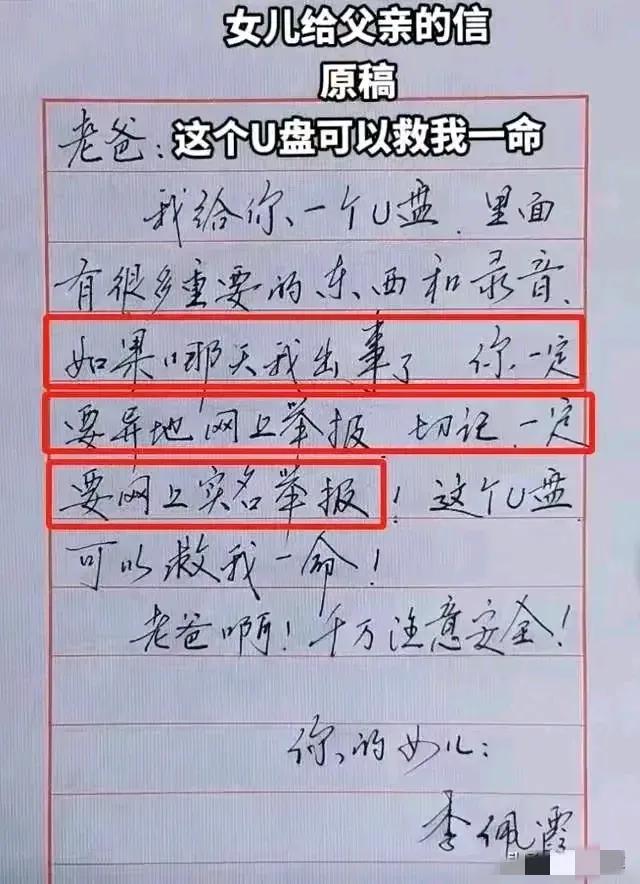 女儿给父亲的信
原稿
这个U盘可以救我一命
老爸:
我给你一个U盘.里面
有很多重要的东西和录音.
如果哪天我出事了 你一定
要异地网上举报 切记.一定
要网上实名举报!这个U盘
可以救我一命!
老爸啊!千万注意安全!
你的女儿:
李佩霞